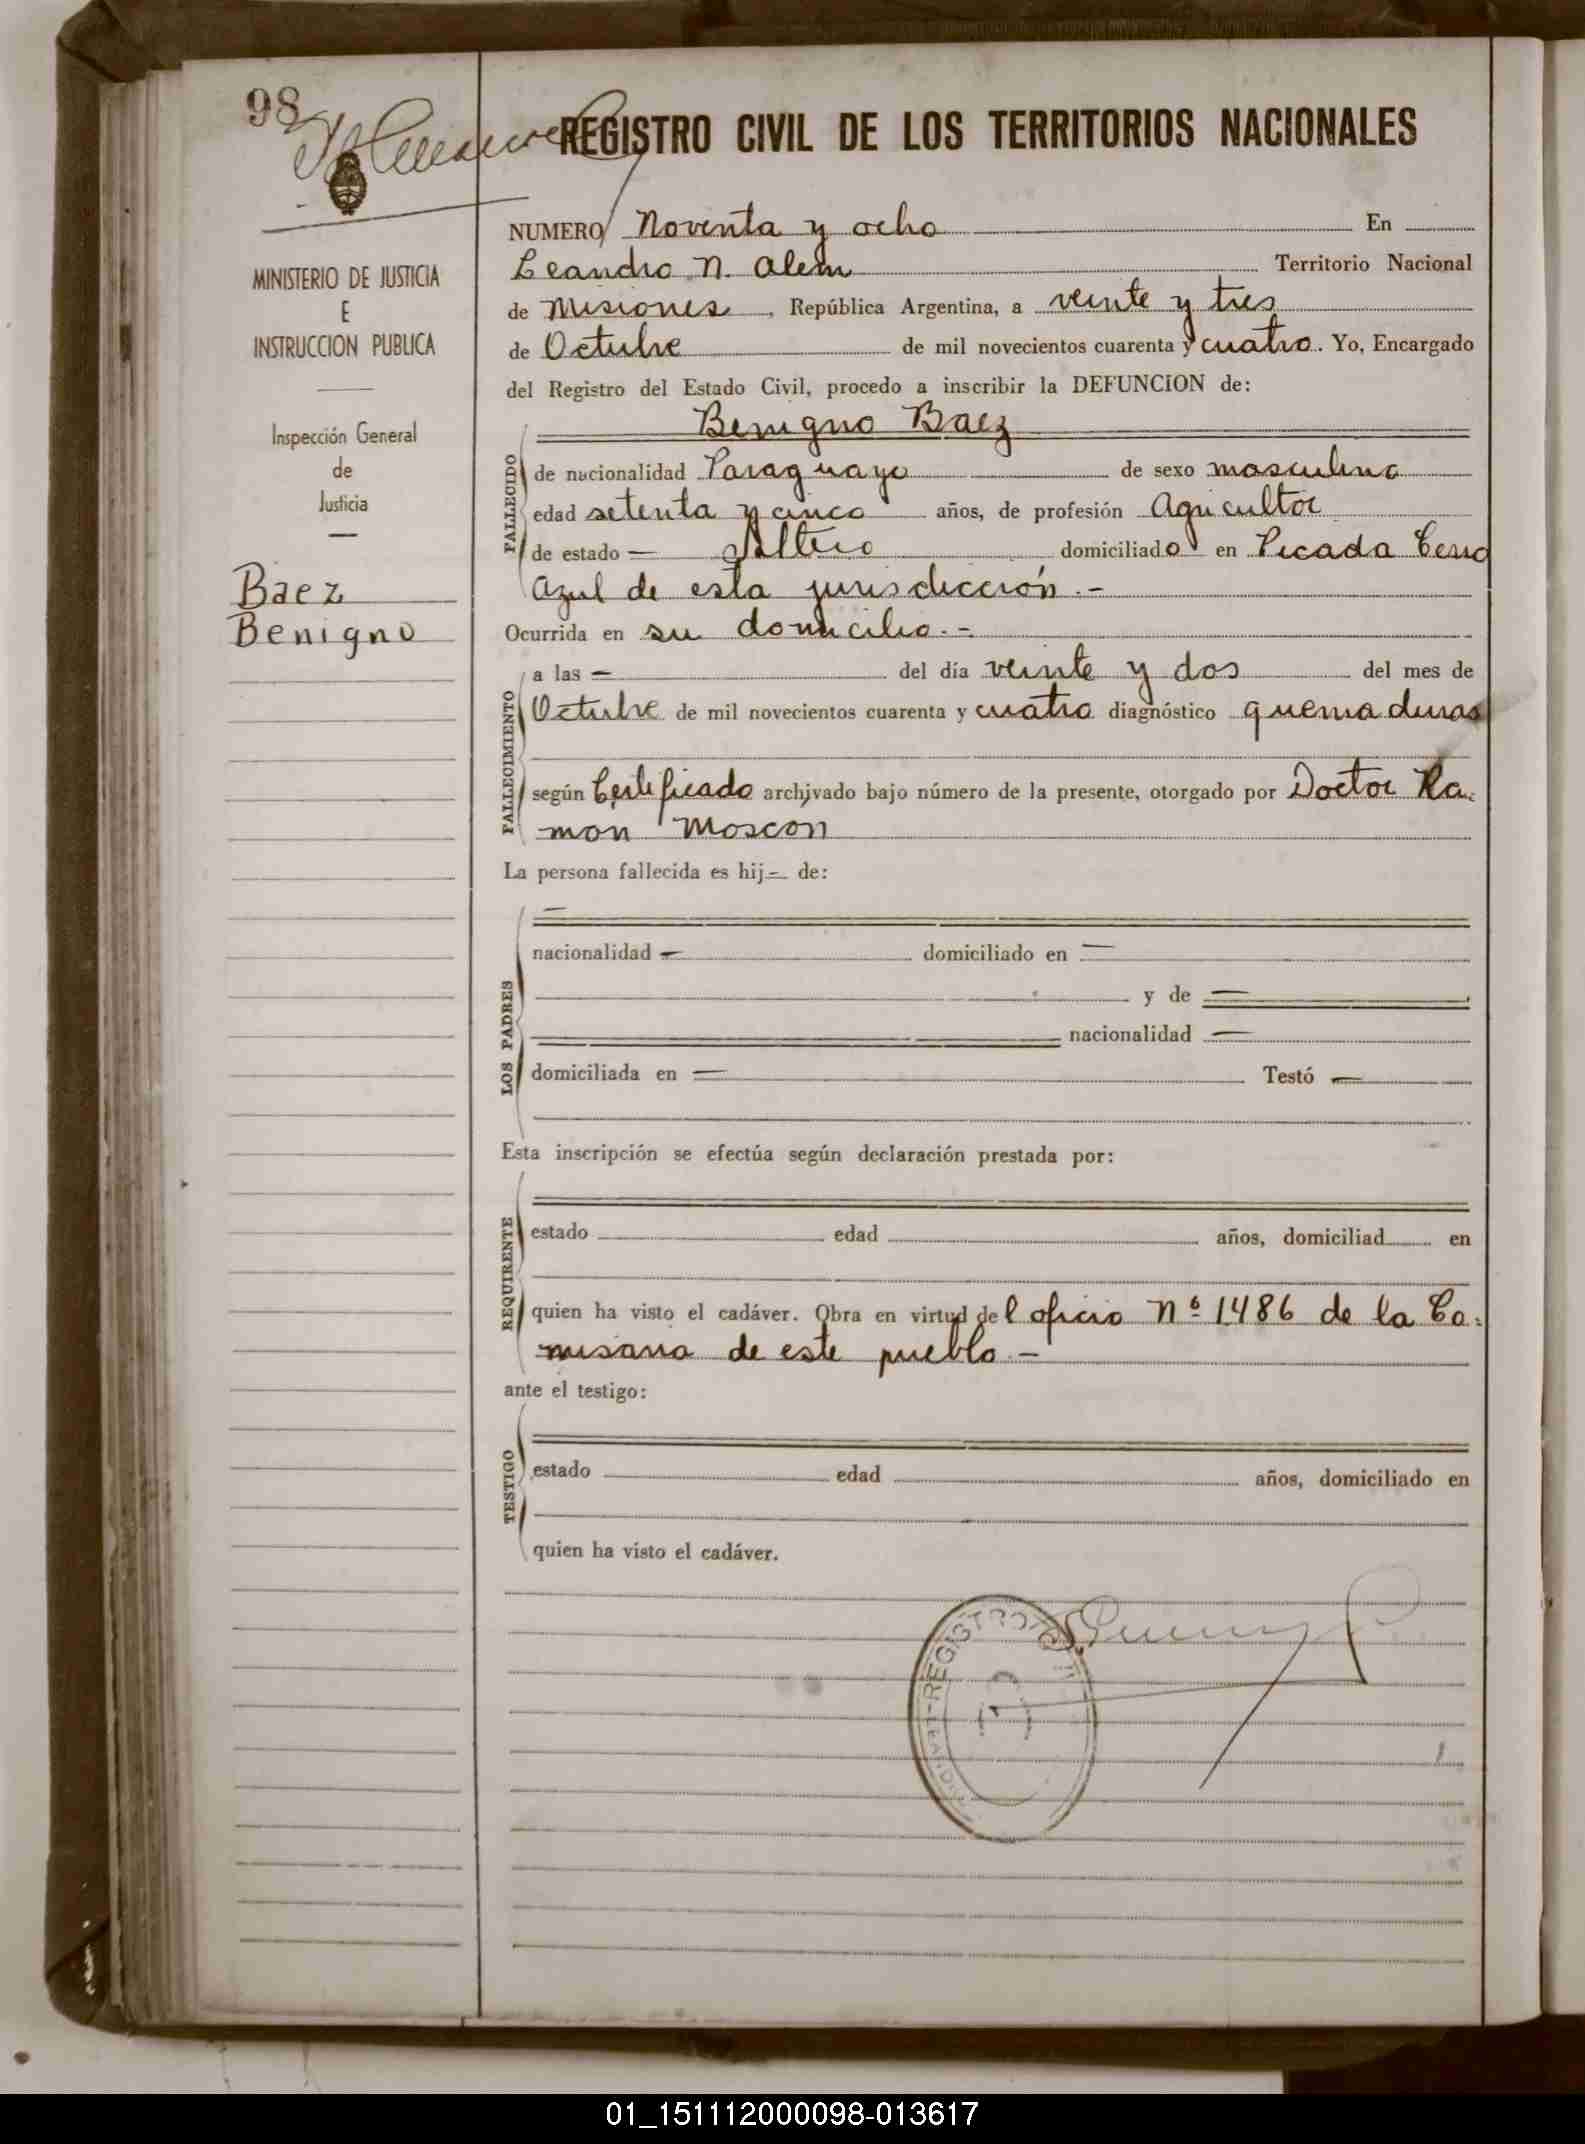 98
REGISTRO CIVIL DE LOS TERRITORIOS NACIONALES
MINISTERIO DE JUSTICIA
E
INSTRUCCION PUBLICA
Inspección General
de
Justicia
Baez
Benigno
NUMERO Noventa y ocho En
Leandro N. Alem Territorio Nacional
de Misiones, República Argentina, a veinte y tres
de Octubre de mil novecientos cuarenta y cuatro. Yo, Encargado
del Registro del Estado Civil, procedo a inscribir la DEFUNCION de:
Benigno Baez
FALLECIDO
de nacionalidad Paraguayo de sexo masculino
edad setenta y cinco años, de profesión Agricultor
de estado — soltero domiciliado en Picada Cerro
Azul de esta jurisdicción.-
Ocurrida en su domicilio.-
FALLECIMIENTO
a las — del día veinte y dos del mes de
Octubre de mil novecientos cuarenta y cuatro diagnóstico quemaduras
según Certificado archivado bajo número de la presente, otorgado por Doctor Ra-
mon Moscon
La persona fallecida es hij— de:
LOS PADRES
—
nacionalidad — domiciliado en —
y de —
nacionalidad —
domiciliada en — Testó —
Esta inscripción se efectúa según declaración prestada por:
REQUIRENTE
estado edad años, domiciliad en
quien ha visto el cadáver. Obra en virtud del oficio Nº 1486 de la Co-
misaria de este pueblo.-
ante el testigo:
TESTIGO
estado edad años, domiciliado en
quien ha visto el cadáver.
REGISTRO
01_151112000098-013617